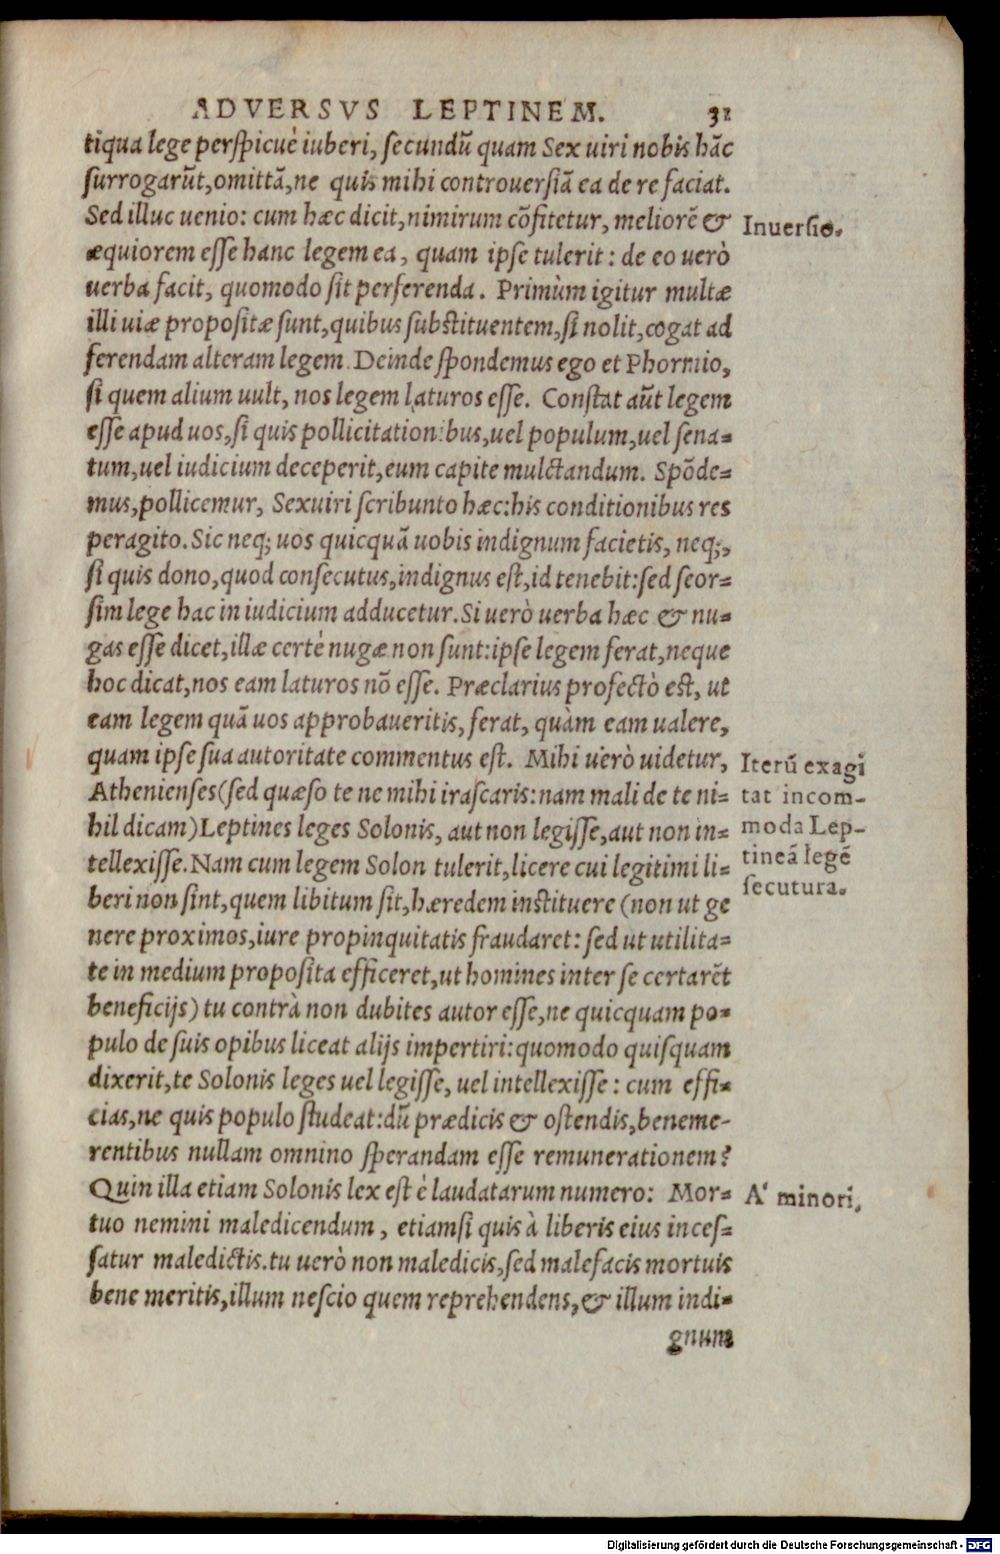 ADVERSVS LEPTINEM. 31
tiqua lege perſpicuè iuberi, ſecundū quam Sex uiri nobis hāc
ſurrogarūt, omittā, ne quis mihi controuerſiā ea de re faciat.
Sed illuc uenio: cum hæc dicit, nimirum cōfitetur, meliorē &
æquiorem eſſe hanc legem ea, quam ipſe tulerit: de eo uerò
uerba facit, quomodo ſit perferenda. Primùm igitur multæ
illi uiæ propoſitæ ſunt, quibus ſubſtituentem, ſi nolit, cogat ad
ferendam alteram legem. Deinde ſpondemus ego et Phormio,
ſi quem alium uult, nos legem laturos eſſe. Conſtat aūt legem
eſſe apud uos, ſi quis pollicitationibus, uel populum, uel ſena=
tum, uel iudicium deceperit, eum capite mulctandum. Spōde=
mus, pollicemur, Sexuiri ſcribunto hæc: his conditionibus res
peragito. Sic neq; uos quicquā uobis indignum facietis, neq;,
ſi quis dono, quod conſecutus, indignus eſt, id tenebit: ſed ſeor=
ſim lege hac in iudicium adducetur. Si uerò uerba hæc & nu=
gas eſſe dicet, illæ certè nugæ non ſunt: ipſe legem ferat, neque
hoc dicat, nos eam laturos nō eſſe. Præclarius profectò eſt, ut
eam legem quā uos approbaueritis, ferat, quàm eam ualere,
quam ipſe ſua autoritate commentus eſt. Mihi uerò uidetur,
Athenienſes (ſed quæſo te ne mihi iraſcaris: nam mali de te ni=
hil dicam) Leptines leges Solonis, aut non legiſſe, aut non in=
tellexiſſe. Nam cum legem Solon tulerit, licere cui legitimi li=
beri non ſint, quem libitum ſit, hæredem inſtituere (non ut ge
nere proximos, iure propinquitatis fraudaret: ſed ut utilita=
te in medium propoſita efficeret, ut homines inter ſe certarēt
beneficijs) tu contrà non dubites autor eſſe, ne quicquam po=
pulo de ſuis opibus liceat alijs impertiri: quomodo quiſquam
dixerit, te Solonis leges uel legiſſe, uel intellexiſſe: cum effi=
cias, ne quis populo ſtudeat: dū prædicis & oſtendis, beneme-
rentibus nullam omnino ſperandam eſſe remunerationem?
Quin illa etiam Solonis lex eſt è laudatarum numero: Mor=
tuo nemini maledicendum, etiamſi quis à liberis eius inceſ=
ſatur maledictis. tu uerò non maledicis, ſed malefacis mortuis
bene meritis, illum neſcio quem reprehendens, & illum indi=
gnum
Inuerſio.
Iterū exagi
tat incom-
moda Lep-
tineā legē
ſecutura.
A' minori.
Digitalisierung gefördert durch die Deutsche Forschungsgemeinschaft - DFG